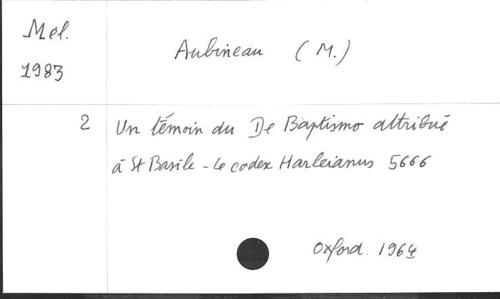 Mel.
1983
Aubineau (M.)
2
Un témoin du De Baptismo attribué
à St Basile - le codex Harleianus 5666
Oxford. 1964